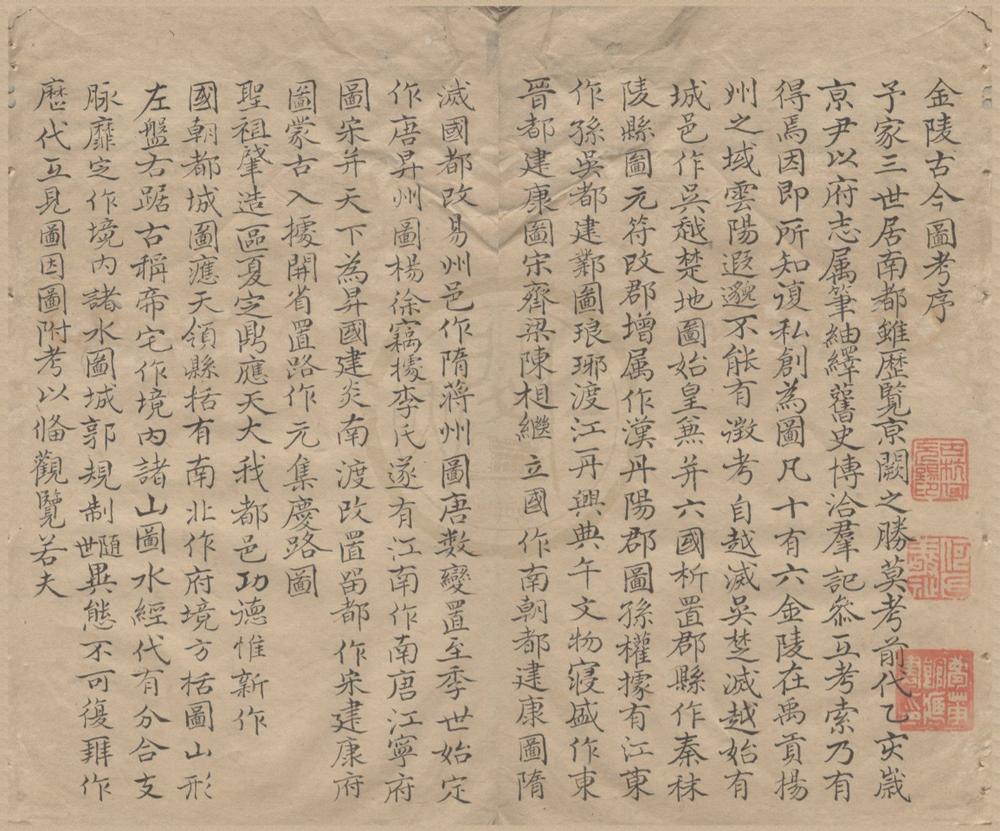 金陵古今圖考序
予家三世居南都雖歷覽京闕之勝莫考前代乙亥歲
京尹以府志属筆紬繹舊史博洽羣記叅互考索乃有
得焉因即所知復私創為圖凡十有六金陵在禹貢揚
州之域雲陽遐邈不能有徵考自越滅吳楚滅越始有
城邑作吳越楚地圖始皇兼并六國析置郡縣作秦秣
陵縣圖元符改郡增属作漢丹陽郡圖孫權據有江東
作孫吳都建鄴圖琅琊渡江再興典午文物寖盛作東
晉都建康圖宋齊梁陳相繼立國作南朝都建康圖隋
滅國都改易州邑作隋蔣州圖唐數變置至季世始定
作唐昇州圖楊徐竊據李氏遂有江南作南唐江寧府
圖宋并天下為昇國建炎南渡改置留都作宋建康府
圖蒙古入據開省置路作元集慶路圖
聖祖肇造區夏定鼎應天大我都邑功德惟新作
國朝都城圖應天領縣括有南北作府境方括圖山形
左盤右踞古稱帝宅作境內諸山圖水經代有分合支
脉靡定作境內諸水圖城郭規制隨世異態不可復雜作
歷代互見圖因圖附考以俻觀覽若夫